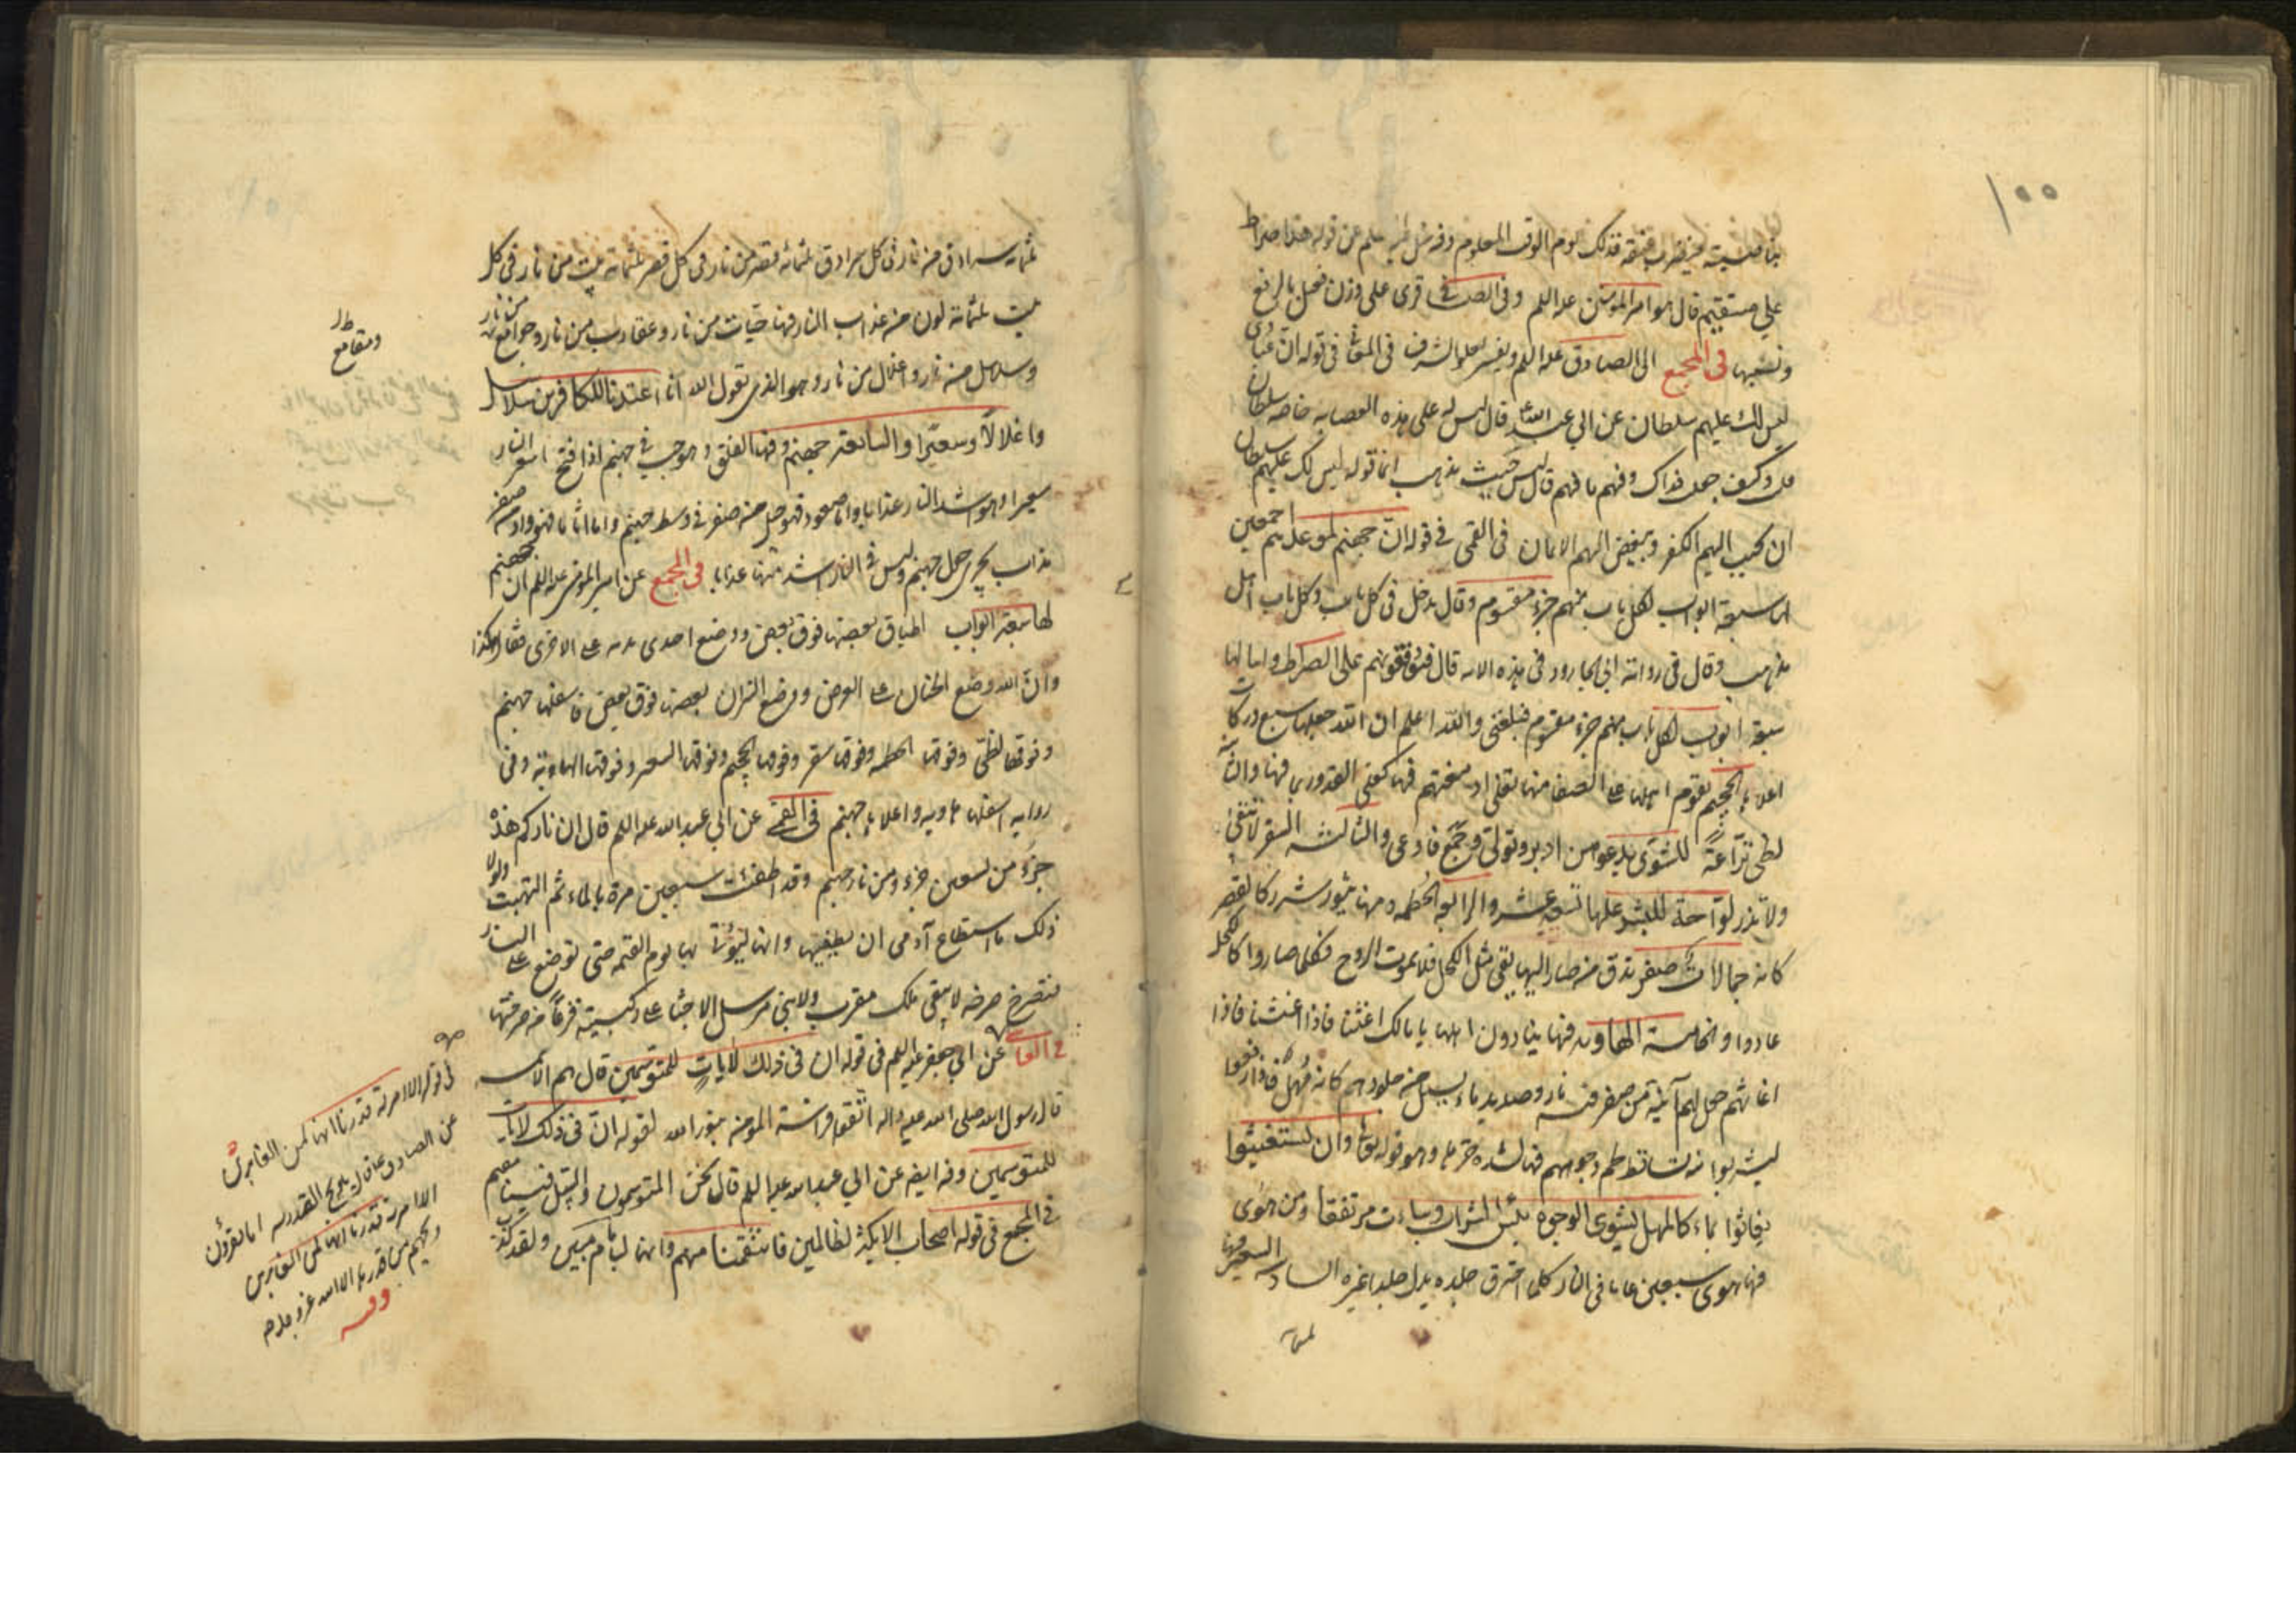 ١٠٠
بناصيته فيضرب عنقه فذلك يوم الوقت المعلوم وفيه عن قوله هذا صراط
علي مستقيم قال هو امير المؤمنين عليه السلم وفي الصافي قرئ علي وزن فعيل بالرفع
ونسبها في المجمع الى الصادق عليه السلم ويفسر بعلو الشرف في قوله ان عبادي
ليس لك عليهم سلطان عن ابي عبد الله قال ليس له على هذه العصابة خاصة سلطان
قلت وكيف جعلت فداك وفيهم ما فيهم قال ليس حيث تذهب انما قوله ليس لك عليهم سلطان
ان يحبب اليهم الكفر ويبغض اليهم الايمان في القمي في قوله ان جهنم لموعدهم اجمعين
لها سبعة ابواب لكل باب منهم جزء مقسوم وقال يدخل في كل باب اهل
مذهب وقال في رواية ابي الجارود في هذه الاية قال فوقوفهم على الصراط واما لها
سبعة ابواب لكل باب منهم جزء مقسوم فبلغني والله اعلم ان الله جعلها سبع دركات
اعلاها الجحيم يقوم اهلها على الصفا منها تغلي ادمغتهم فيها كغلي القدور بما فيها والثانية
لظى نزاعة للشوى يدعو من ادبر وتولى وجمع فاوعى والثالثة السقر لا تبقي
ولا تذر لواحة للبشر عليها تسعة عشر والرابعة الحطمة ومنها يثور شرر كالقصر
كانه جمالات صفر تدق من صار اليها يبقى مثل الكحل فلا يموت الروح فكلما صاروا كالكحل
عادوا والخامسة الهاوية فيها ينادون اهلها يا مالك اغثنا فاذا اغاثنا فاذا
اغاثهم جعل لهم آنية من صفر فيه نار وصديد ماء يسيل من جلودهم كانه مهل فاذا رفعوا
ليشربوا منه تساقط لحم وجوههم فيها لشدة حرها وهو قوله وان يستغيثوا
يغاثوا بماء كالمهل يشوي الوجوه بئس الشراب وساءت مرتفقا ومن هوى
فيها هوى سبعين عاما في النار كلما احترق جلده بدل جلدا غيره السادسة السعير فيها
ثلثمائة سرادق من نار في كل سرادق ثلثمائة قصر من نار في كل قصر ثلثمائة بيت من نار في كل
بيت ثلثمائة لون من عذاب النار فيها حيات من نار وعقارب من نار وجوامع من نار
وسلاسل من نار واغلال من نار وهو الذي يقول الله انا اعتدنا للكافرين سلاسل
واغلالا وسعيرا والسابعة جهنم وفيها الفلق وهو جب في جهنم اذا فتح اسعر النار
سعيرا وهو اشد النار عذابا واما صعود فهو جبل من صفر في وسط جهنم واما اثاما فهو واد من صفر
مذاب يجري حول جهنم وليس في النار اشد منها عذابا في المجمع عن امير المؤمنين عليه السلم ان جهنم
لها سبعة ابواب اطباق بعضها فوق بعض ووضع احدى يديه على الاخرى فقال هكذا
وان الله وضع الجنان على العرض ووضع النيران بعضها فوق بعض فاسفلها جهنم
وفوقها لظى وفوقها الحطمة وفوقها سقر وفوقها الجحيم وفوقها السعير وفوقها الهاوية وفي
رواية اسفلها هاوية واعلاها جهنم في القمي عن ابي عبد الله عليه السلم قال ان ناركم هذه
جزء من سبعين جزء من نار جهنم وقد اطفئت سبعين مرة بالماء ثم التهبت ولولا
ذلك ما استطاع آدمي ان يطفيها وانها ليؤتى بها يوم القيمة حتى توضع على النار
فتصرخ صرخة لا يبقى ملك مقرب ولا نبي مرسل الا جثا على ركبتيه فزعا من صرختها
عن ابي جعفر عليه السلم في قوله ان في ذلك لآيات للمتوسمين قال هم الائمة
قال رسول الله صلى الله عليه واله اتقوا فراسة المؤمن فانه ينظر بنور الله لقوله ان في ذلك لايات
للمتوسمين وفيه ايضا عن ابي عبد الله عليه السلم قال نحن المتوسمون والسبيل فينا مقيم
في المجمع في قوله اصحاب الايكة لظالمين فانتقمنا منهم وانهما لبامام مبين ولقد كذب
ومقامع
في قوله الا امرته قدرنا انها لمن الغابرين
عن الصادق قال ويح القدرية اما يقرؤن
الا امرته قدرنا انها لمن الغابرين
ويحهم من قدرها الا الله عز وجل
وفيه